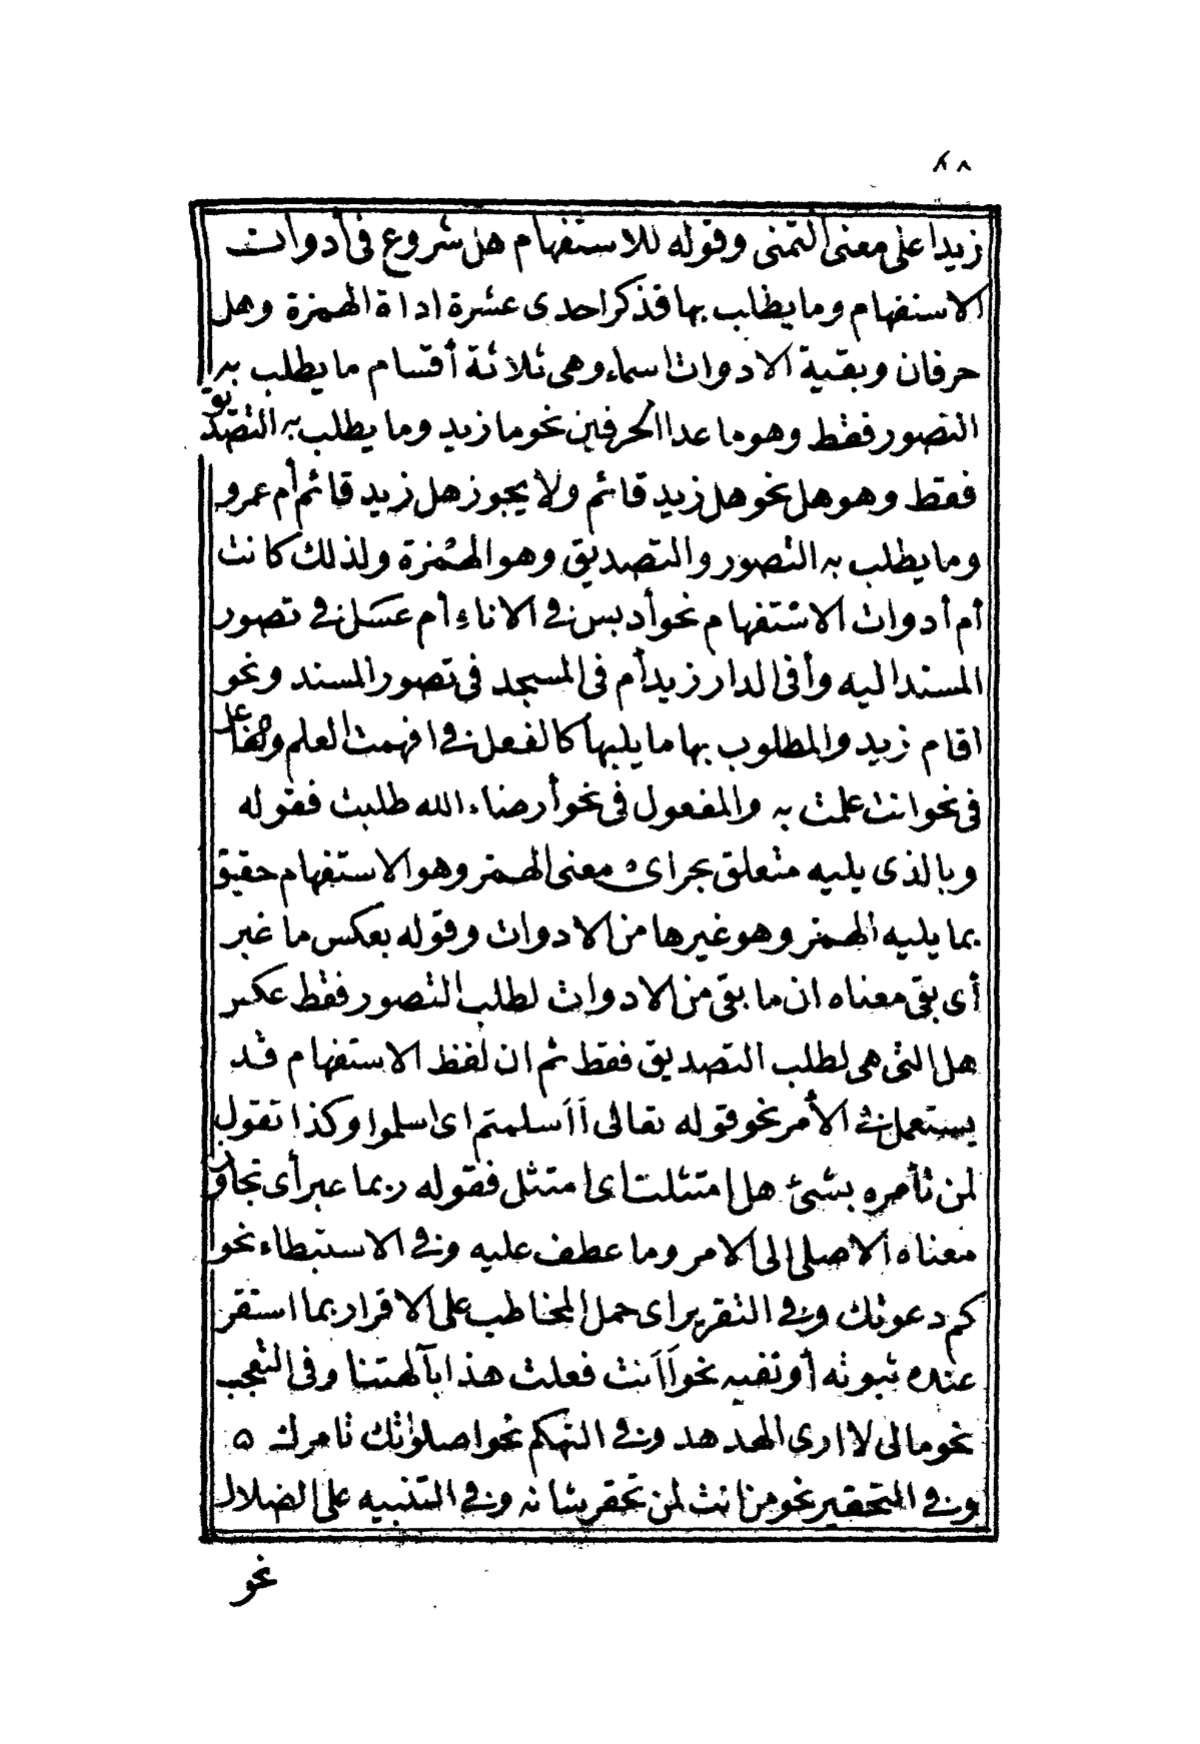 ٦٨
زيدا على معنى التمنى وقوله للاستفهام هل شروع فى أدوات
الاستفهام وما يطلب بها فذكر احدى عشرة اداة الهمزة وهل
حرفان وبقية الادوات اسماء وهى ثلاثة أقسام ما يطلب به
التصور فقط وهو ما عدا الحرفين نحو ما زيد وما يطلب به التصديق
فقط وهو هل نحو هل زيد قائم ولا يجوز هل زيد قائم أم عمرو
وما يطلب به التصور والتصديق وهو الهمزة ولذلك كانت
أم أدوات الاستفهام نحو أدبس فى الاناء أم عسل فى تصور
المسند اليه وأفى الدار زيد أم فى المسجد فى تصور المسند ونحو
اقام زيد والمطلوب بها ما يليها كالفعل فى افهمت العلم والفاعل
فى نحو انت علمت به والمفعول فى نحو أرضاء الله طلبت فقوله
وبالذى يليه متعلق بحراى معنى الهمز وهو الاستفهام حقيق
بما يليه الهمز وهو غيرها من الادوات وقوله بعكس ما غبر
أى بقى معناه ان ما بقى من الادوات لطلب التصور فقط عكس
هل التى هى لطلب التصديق فقط ثم ان لفظ الاستفهام قد
يستعمل فى الأمر نحو قوله تعالى أأسلمتم اى اسلموا وكذا تقول
لمن تأمره بشئ هل امتثلت اى امتثل فقوله ربما عبر أى تجاوز
معناه الاصلى الى الامر وما عطف عليه وفى الاستبطاء نحو
كم دعوتك وفى التقرير اى حمل المخاطب على الاقرار بما استقر
عنده ثبوته أو نفيه نحو أأنت فعلت هذا بآلهتنا وفى التعجب
نحو مالى لا ارى الهدهد وفى التهكم نحو اصلواتك تامرك ه
وفى التحقير نحو من انت لمن تحقر بشانه وفى التنبيه على الضلال
نحو